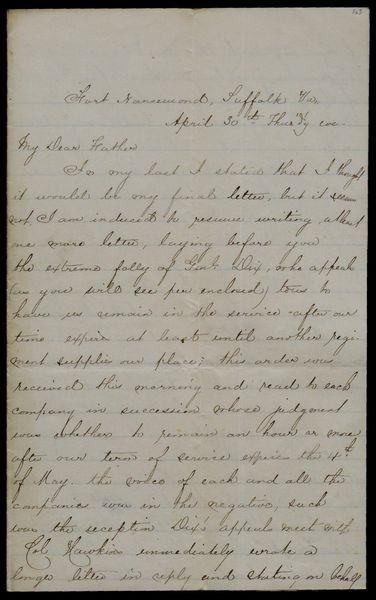 163
Fort Nansemond, Suffolk Va.
April 30th Thurs'y eve.
My Dear Father
In my last I stated that I thought
it would be my final letter, but it seems
not. I am induced to resume writing, at least
one more letter, laying before you
the extreme folly of Genl. Dix, who appeals
(as you will see per enclosed) to us to
have us remain in the service after our
time expires at least until another regi-
ment supplies our place; this order was
received this morning and read to each
company in succession whose judgment
was whether to remain an hour or more
after our term of service expires the 4th
of May. the voice of each and all the
companies was in the negative, such
was the reception Dix's appeals meet with
Col Hawkins immediately wrote a
longer letter in reply and stating on behalf